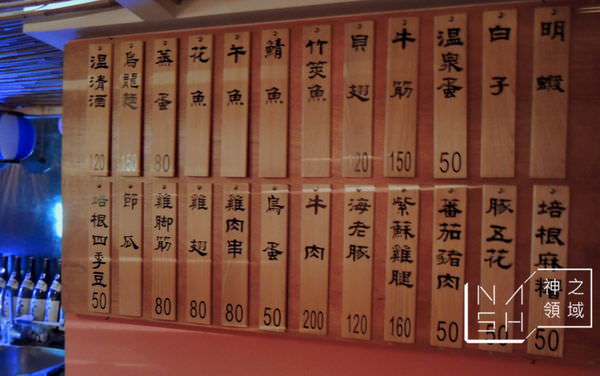 明蝦
白子
溫泉蛋 50
牛筋 150
貝翅 120
竹筴魚
鯖魚
午魚
花魚
蒸蛋 80
烏龍麵 150
溫清酒 120
培根麻糬 50
豚五花 50
蕃茄豬肉 50
紫蘇雞腿 160
海老豚 120
牛肉 200
鳥蛋 50
雞肉串 80
雞翅 80
雞腳筋 80
節瓜
培根四季豆 50
神之
領域